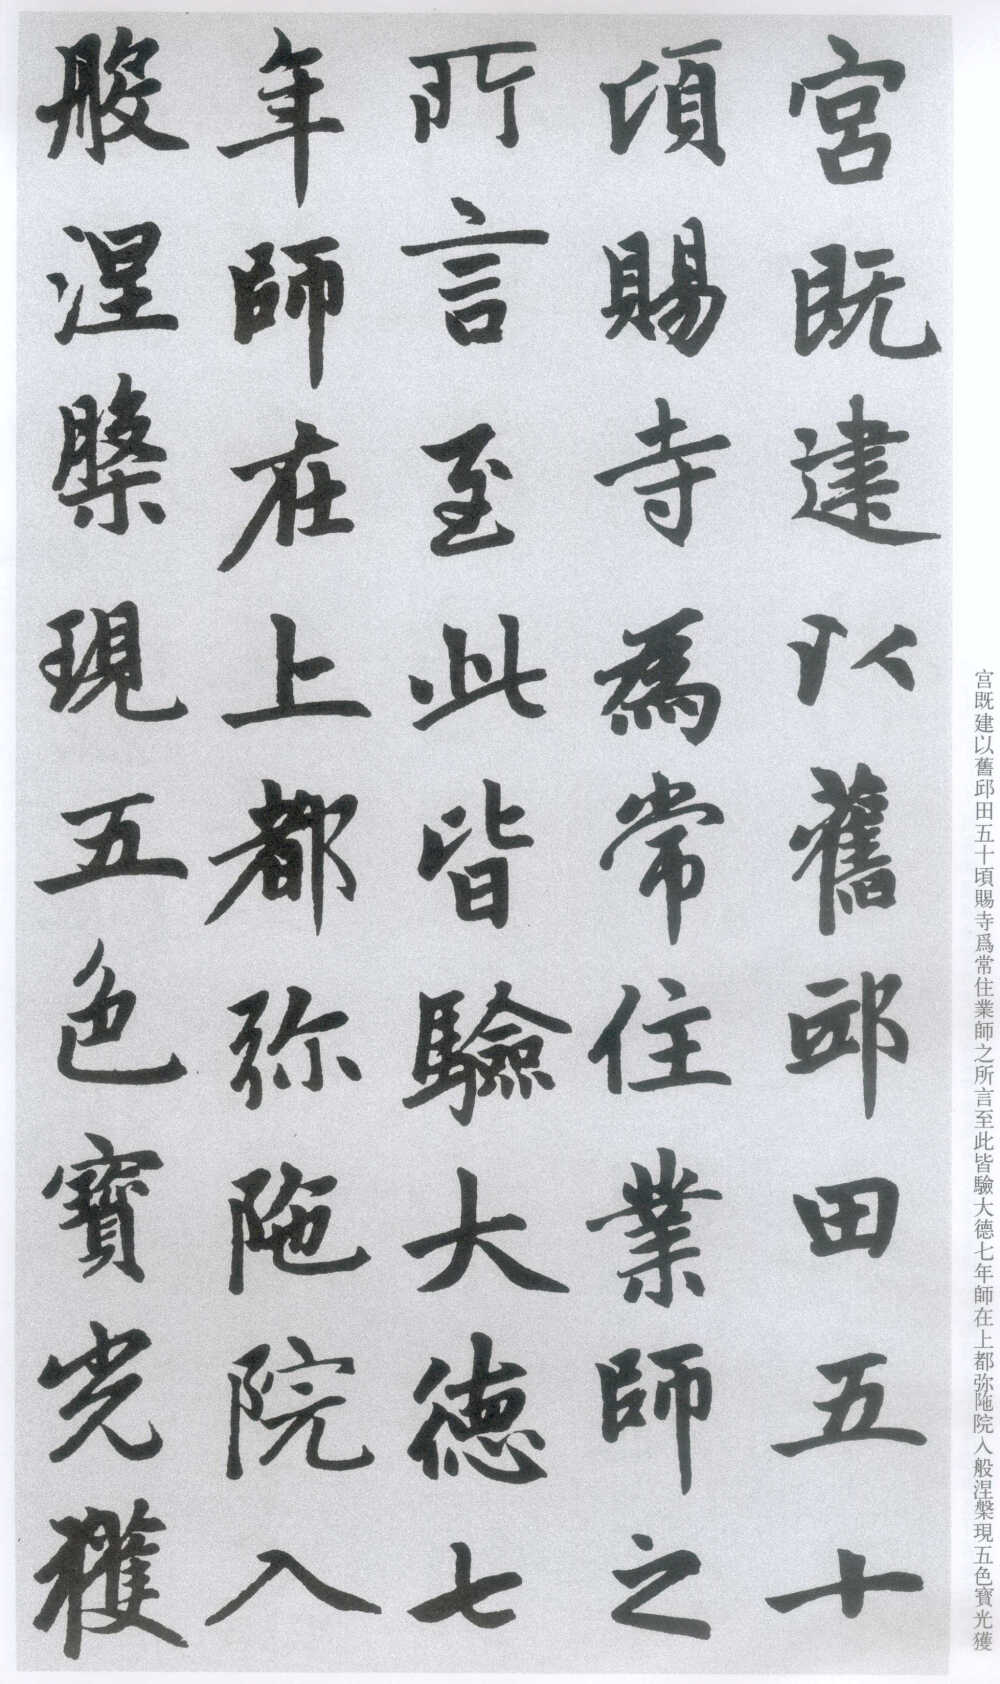 宮既建以舊邱田五十
頃賜寺為常住業師之
所言至此皆驗大德七
年師在上都弥陁院入
般涅槃現五色寶光獲
宫既建以舊邱田五十頃賜寺爲常住業師之所言至此皆驗大德七年師在上都弥陁院入般涅槃現五色寶光獲